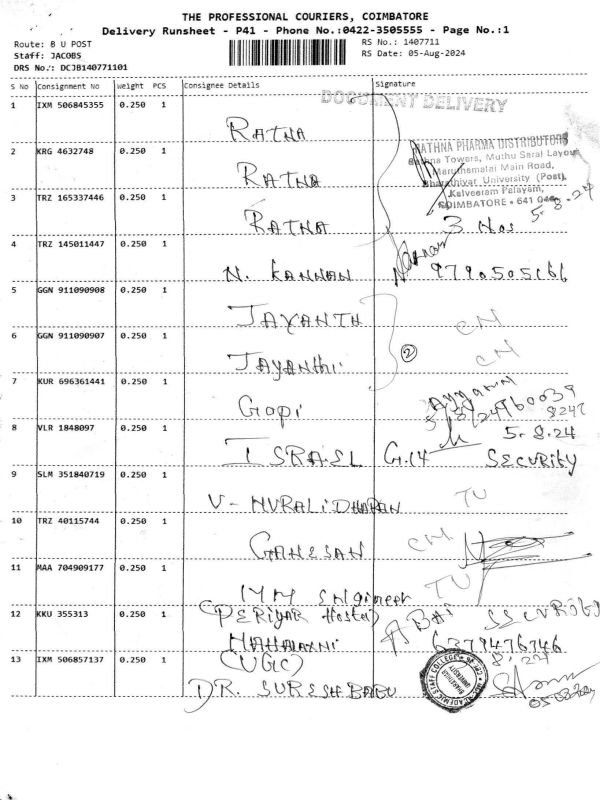 THE PROFESSIONAL COURIERS, COIMBATORE
Delivery Runsheet - P41 - Phone No.:0422-3505555 - Page No.:1
Route: B U POST
Staff: JACOBS
DRS No.: DCJB140771101
RS No.: 1407711
RS Date: 05-Aug-2024
S No Consignment No Weight PCS Consignee Details Signature
DOCUMENT DELIVERY
1 IXM 506845355 0.250 1
RATNA
RATHNA PHARMA DISTRIBUTORS
Rathna Towers, Muthu Saral Layout
Maruthamalai Main Road,
Bharathiyar University (Post),
Kalveeram Palayam,
COIMBATORE - 641 046
5.8.24
2 KRG 4632748 0.250 1
RATNA
3 TRZ 165337446 0.250 1
RATNA 3 Nos
4 TRZ 145011447 0.250 1
N. KANNAN Kannan 9790505166
5 GGN 911090908 0.250 1
JAYANTH CM
6 GGN 911090907 0.250 1
JAYANTHI 2 CM
7 KUR 696361441 0.250 1
GOPI
8 VLR 1848097 0.250 1
5.8.24
ISRAEL G.14 SECURITY
9 SLM 351840719 0.250 1
V- MURALIDHARAN TU
10 TRZ 40115744 0.250 1
GANESAN CM
11 MAA 704909177 0.250 1
MM Engineer TU
12 KKU 355313 0.250 1
(PERIYAR Hostel)
MAHALAXMI 6379476346
13 IXM 506857137 0.250 1
(UGC)
DR. SURESH BABU